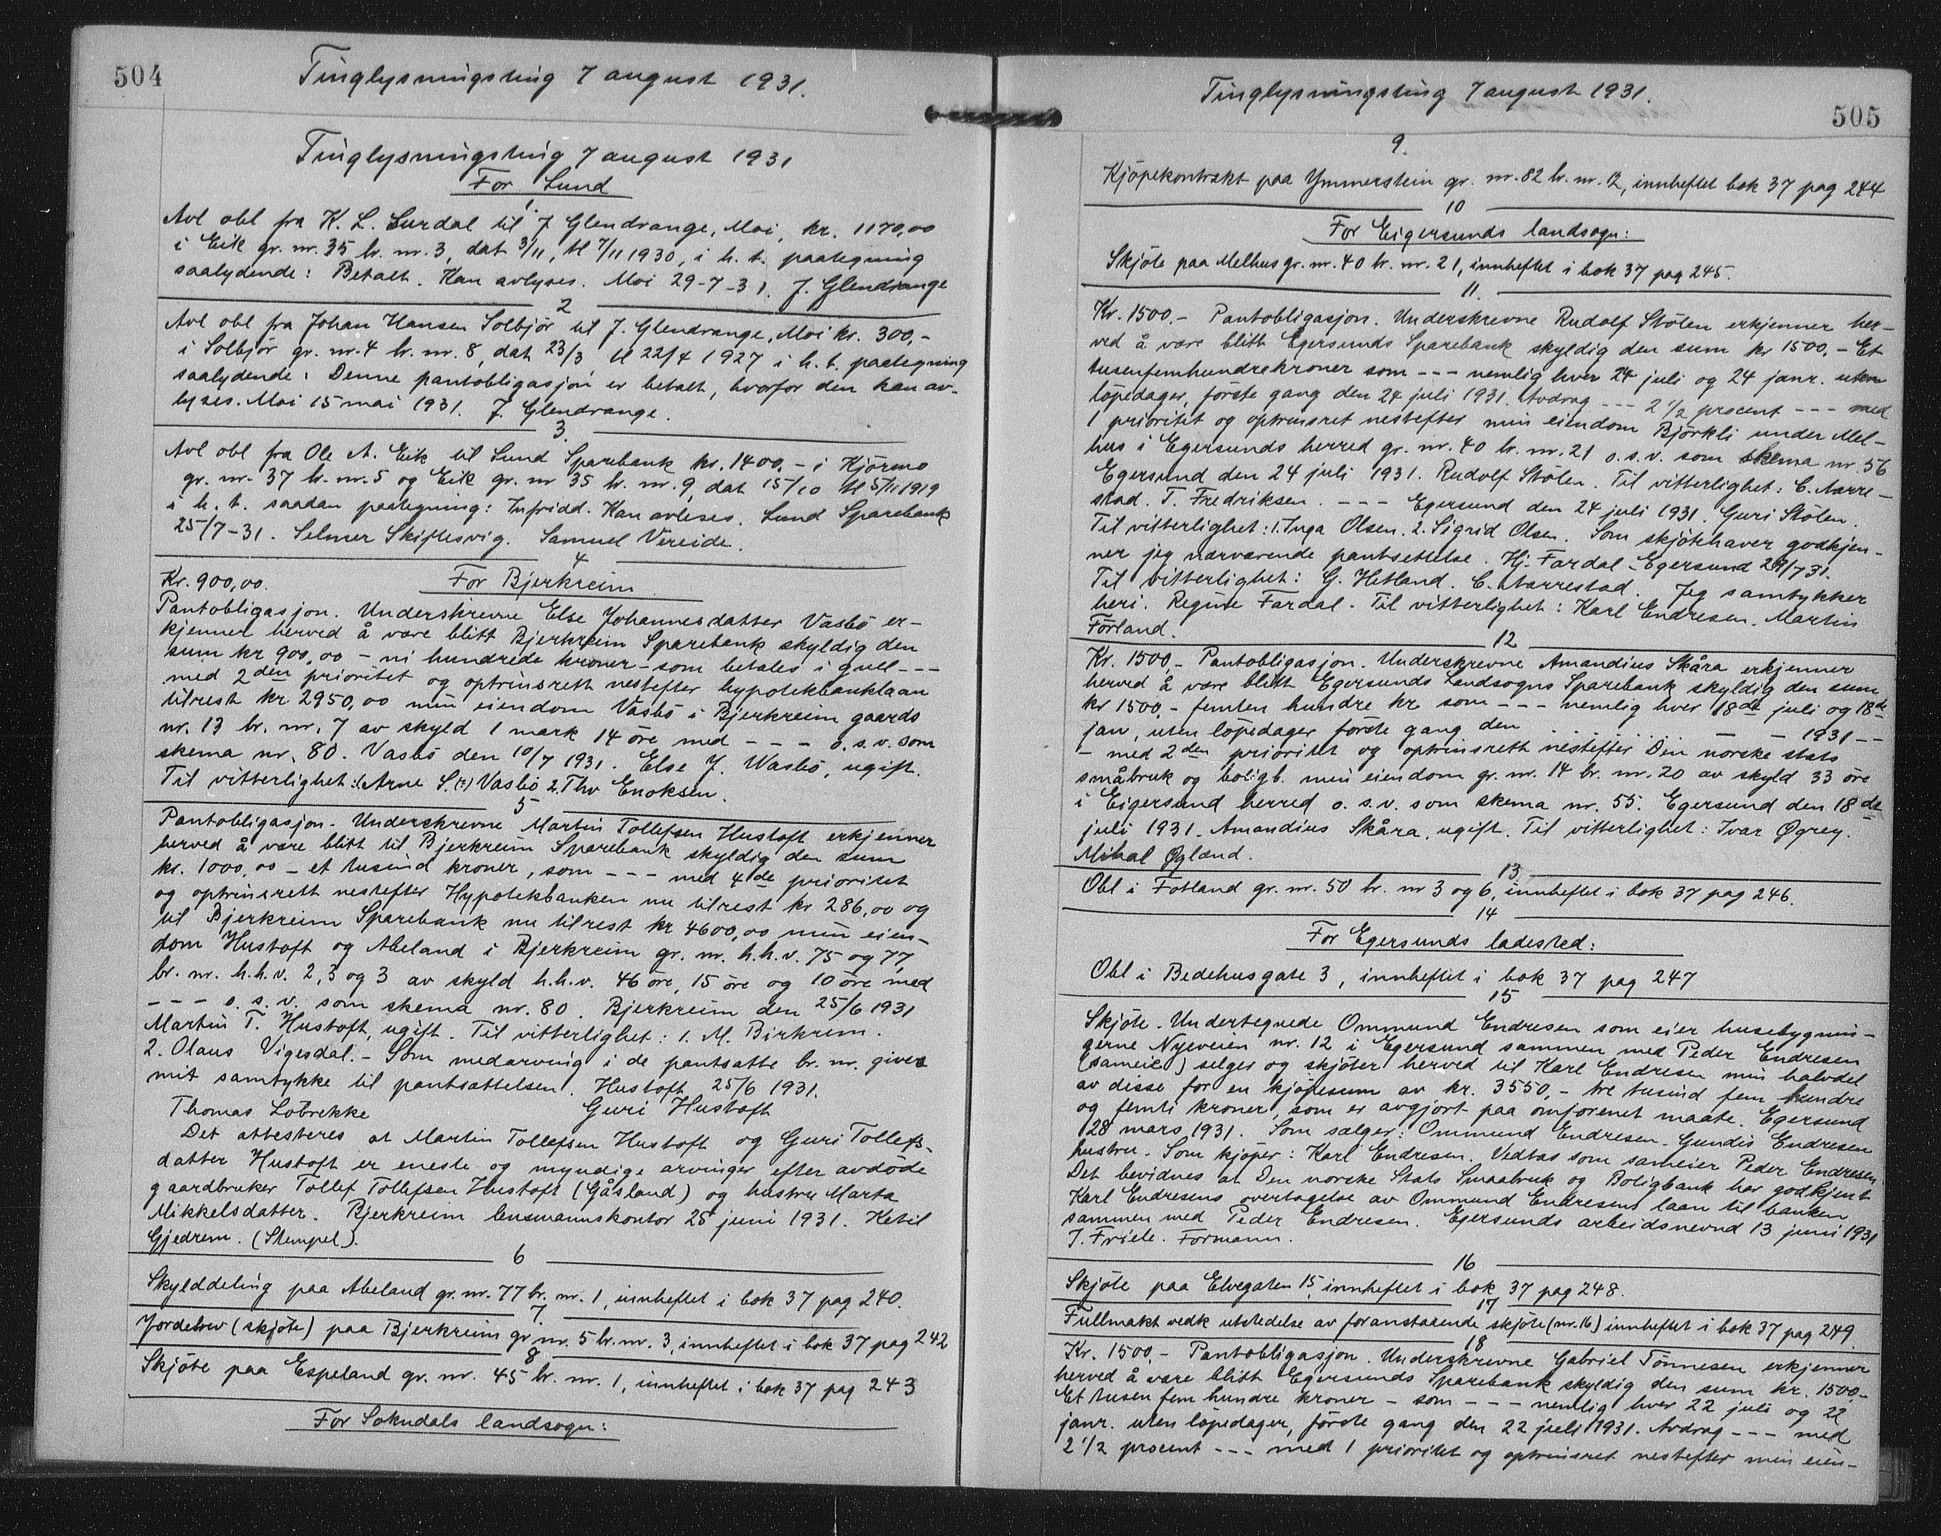 504
Tinglysningsting 7 august 1931.
Tinglysningsting 7 august 1931
For Lund
1.
Avl obl fra K. L. Surdal til J Glendrange, Moi, kr. 1170,00
i Eik gr. nr. 35 br. nr. 3, dat 3/11, tl 7/11 1930, i h. t. paategning
saalydende: Betalt. Kan avlyses. Moi 29-7-31. J. Glendrange
2
Avl obl fra Johan Hansen Solbjör til J. Glendrange, Moi kr. 300,-
i Solbjör gr. nr. 4 br. nr. 8, dat 23/3 tl 22/4 1927 i h. t. paategning
saalydende: Denne pantobligasjon er betalt, hvorfor den kan av-
lyses. Moi 15 mai 1931. J. Glendrange.
3.
Avl obl fra Ole A. Eik til Lund Sparebank kr. 1400,- i Kjörmo
gr. nr. 37 br. nr. 5 og Eik gr. nr 35 br. nr. 9, dat 15/10 tl 5/11 1919
i h. t. saadan paategning: Infridd. Kan avleses. Lund Sparebank
25/7-31. Selmer Skiftesvig. Samuel Vereide.
4
Kr. 900,00. For Bjerkreim
Pantobligasjon. Underskrevne Else Johannesdatter Vasbö er-
kjenner herved å være blitt Bjerkreim Sparebank skyldig den
sum kr 900,00 - ni hundrede kroner - som betales i gull ---
med 2den prioritet og optrinsrett nestefter hypotekbanklaan
tilrest kr 2950,00 min eiendom Vasbö i Bjerkreim gaards
nr. 13 br. nr. 7 av skyld 1 mark 14 öre med - - - o. s. v. som
skema nr. 80. Vasbö den 10/7 1931. Else J. Wasbö, ugift.
Til vitterlighet: 1. Arne S. (?) Vasbö 2. Thv Enoksen.
5
Pantobligasjon. Underskrevne Martin Tollefsen Hustoft erkjenner
herved å være blitt til Bjerkreim Sparebank skyldig den sum
kr. 1000,00 - et tusind kroner, som --- med 4de prioritet
og optrinsrett nestefter Hypotekbanken nu tilrest kr 286,00 og
til Bjerkreim Sparebank nu tilrest kr 4600,00 min eien-
dom Hustoft og Abeland i Bjerkreim gr. nr. h.h.v. 75 og 77,
br. nr. h.h.v. 2, 3 og 3 av skyld h.h.v. 46 öre, 15 öre og 10 öre med
- - - o. s. v. som skema nr. 80. Bjerkreim den 25/6 1931
Martin T. Hustoft, ugift. Til vitterlighet: 1. M. Birkrem.
2. Olaus Vigesdal. - Som medarving i de pantsatte br. nr. gives
mit samtykke til pantsættelsen. Hustoft, 25/6 1931.
Thomas Löbrekke Guri Hustoft
Det attesteres at Martin Tollefsen Hustoft og Guri Tollefs-
datter Hustoft er eneste og myndige arvinger efter avdöde
gaardbruker Tollef Tollefsen Hustoft (Gåsland) og hustru Marta
Mikkelsdatter. Bjerkreim lensmannskontor 25 juni 1931. Ketil
Gjedrem. (Stempel).
6
Skylddeling paa Abeland gr. nr. 77 br. nr. 1, innheftet i bok 37 pag 240.
7.
Jordebrev (skjöte) paa Bjerkreim gr nr. 5 br. nr. 3, innheftet i bok 37 pag 242
8
Skjöte paa Espeland gr. nr. 45 br. nr. 1, innheftet i bok 37 pag 243
For Sokndals landsogn:
505
Tinglysningsting 7 august 1931.
9.
Kjöpekontrakt paa Ymmerstein gr. nr. 82 br. nr. 12, innheftet bok 37 pag 244
10
For Eigersunds landsogn:
Skjöte paa Melhus gr. nr. 40 br. nr. 21, innheftet i bok 37 pag 245.
11.
Kr. 1500.- Pantobligasjon. Underskrevne Rudolf Stölen erkjenner her-
ved å være blitt Egersunds Sparebank skyldig den sum kr 1500,- Et
tusenfemhundrekroner som --- nemlig hver 24 juli og 24 janr. uten
löpedager, förste gang den 24 juli 1931. Avdrag --- 2 1/2 procent --- med
1 prioritet og optrinsret nestefter min eiendom Björkli under Mel-
hus i Egersunds herred gr. nr. 40 br. nr. 21 o. s. v. som skema nr. 56
Egersund den 24 juli 1931. Rudolf Stölen. Til vitterlighet: C. Aarre-
stad. T. Fredriksen. - - - Egersund den 24 juli 1931. Guri Stölen.
Til vitterlighet: 1. Inga Olsen. 2. Sigrid Olsen. Som skjötehaver godkjen-
ner jeg nærværende pantsettelse. Hj. Fardal - Egersund 29/7 31.
Til vitterlighet: G. Hetland. C. Aarrestad. Jeg samtykker
heri. Regine Fardal. Til vitterlighet: Karl Endresen. Martin
Förland.
12
Kr. 1500,- Pantobligasjon. Underskrevne Amandius Skåra erkjenner
herved å være blitt Egersunds Landsogns Sparebank skyldig den sum
kr 1500,- femten hundre kr som --- nemlig hver 18de juli og 18de
jan, uten löpedager förste gang den . . . . . . . . . - 1931 - -
- med 2den prioritet og optrinsrett nestefter Den norske stats
småbruk og boligb. min eiendom gr. nr. 14 br. nr. 20 av skyld 33 öre
i Eigersund herred o. s. v. som skema nr. 55. Egersund den 18de
juli 1931. Amandius Skåra, ugift. Til vitterlighet: Ivar Øgrey.
Mikal Øgland.
13
Obl i Fotland gr. nr. 50 br. nr 3 og 6, innheftet i bok 37 pag 246.
14
For Egersunds ladested:
Obl i Bedehusgate 3, innheftet i bok 37 pag 247
15
Skjöte. Undertegnede Ommund Endresen som eier husebygnin-
gerne Nyeveien nr. 12 i Egersund sammen med Peder Endresen
(sameie) selger og skjöter herved til Karl Endresen min halvdel
av disse for en kjöpesum av kr. 3550,- tre tusind fem hundre
og femti kroner, som er avgjort paa omforenet maate. Egersund
28 mars 1931. Som sælger: Ommund Endresen. Gundis Endresen
hustru. Som kjöper: Karl Endresen. Vedtas som sameier Peder Endresen
Det bevidnes at Den norske Stats Smaabruk og Boligbank har godkjent
Karl Endresens overtagelse av Ommund Endresens laan til banken
sammen med Peder Endresen. Egersunds arbeidsnevnd 13 juni 1931
J. Friele. Formann.
16
Skjöte paa Elvegaten 15, innheftet i bok 37 pag 248.
17
Fullmakt vedk utstedelse av foranstaaende skjöte (nr. 16) innheftet i bok 37 pag 249.
18
Kr. 1500,- Pantobligasjon. Underskrevne Gabriel Tönnesen erkjenner
herved å være blitt Egersunds Sparebank skyldig den sum kr. 1500.-
Et tusen fem hundre kroner - som --- nemlig hver 22 juli og 22
janr. uten löpedager, förste gang den 22 juli 1931. Avdrag --- med
2 1/2 procent --- med 1 prioritet og optrinsret nestefter min eien-